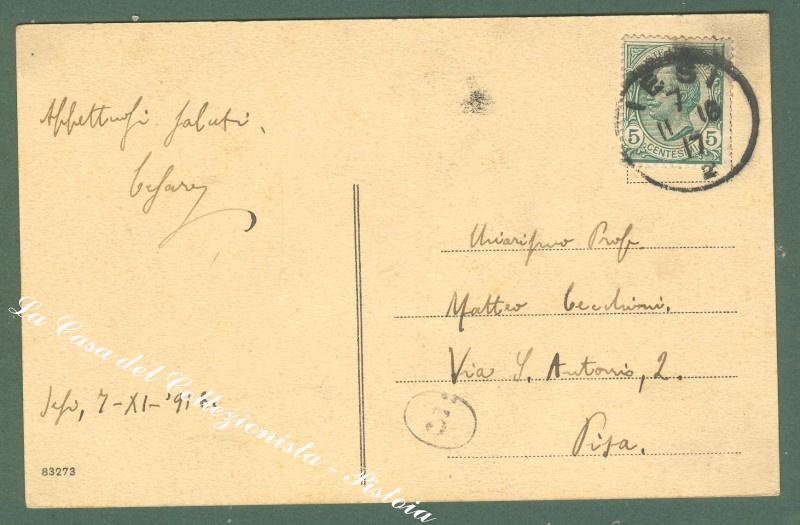 Affettuosi saluti.
Cesare
Jesi, 7-XI-'916.
83273
IESI
7
11 16
17
2
5 CENTESIMI 5
Chiarissimo Prof.
Matteo Cecchini.
Via S. Antonio, 2.
Pisa.
La Casa del Collezionista - Pistoia